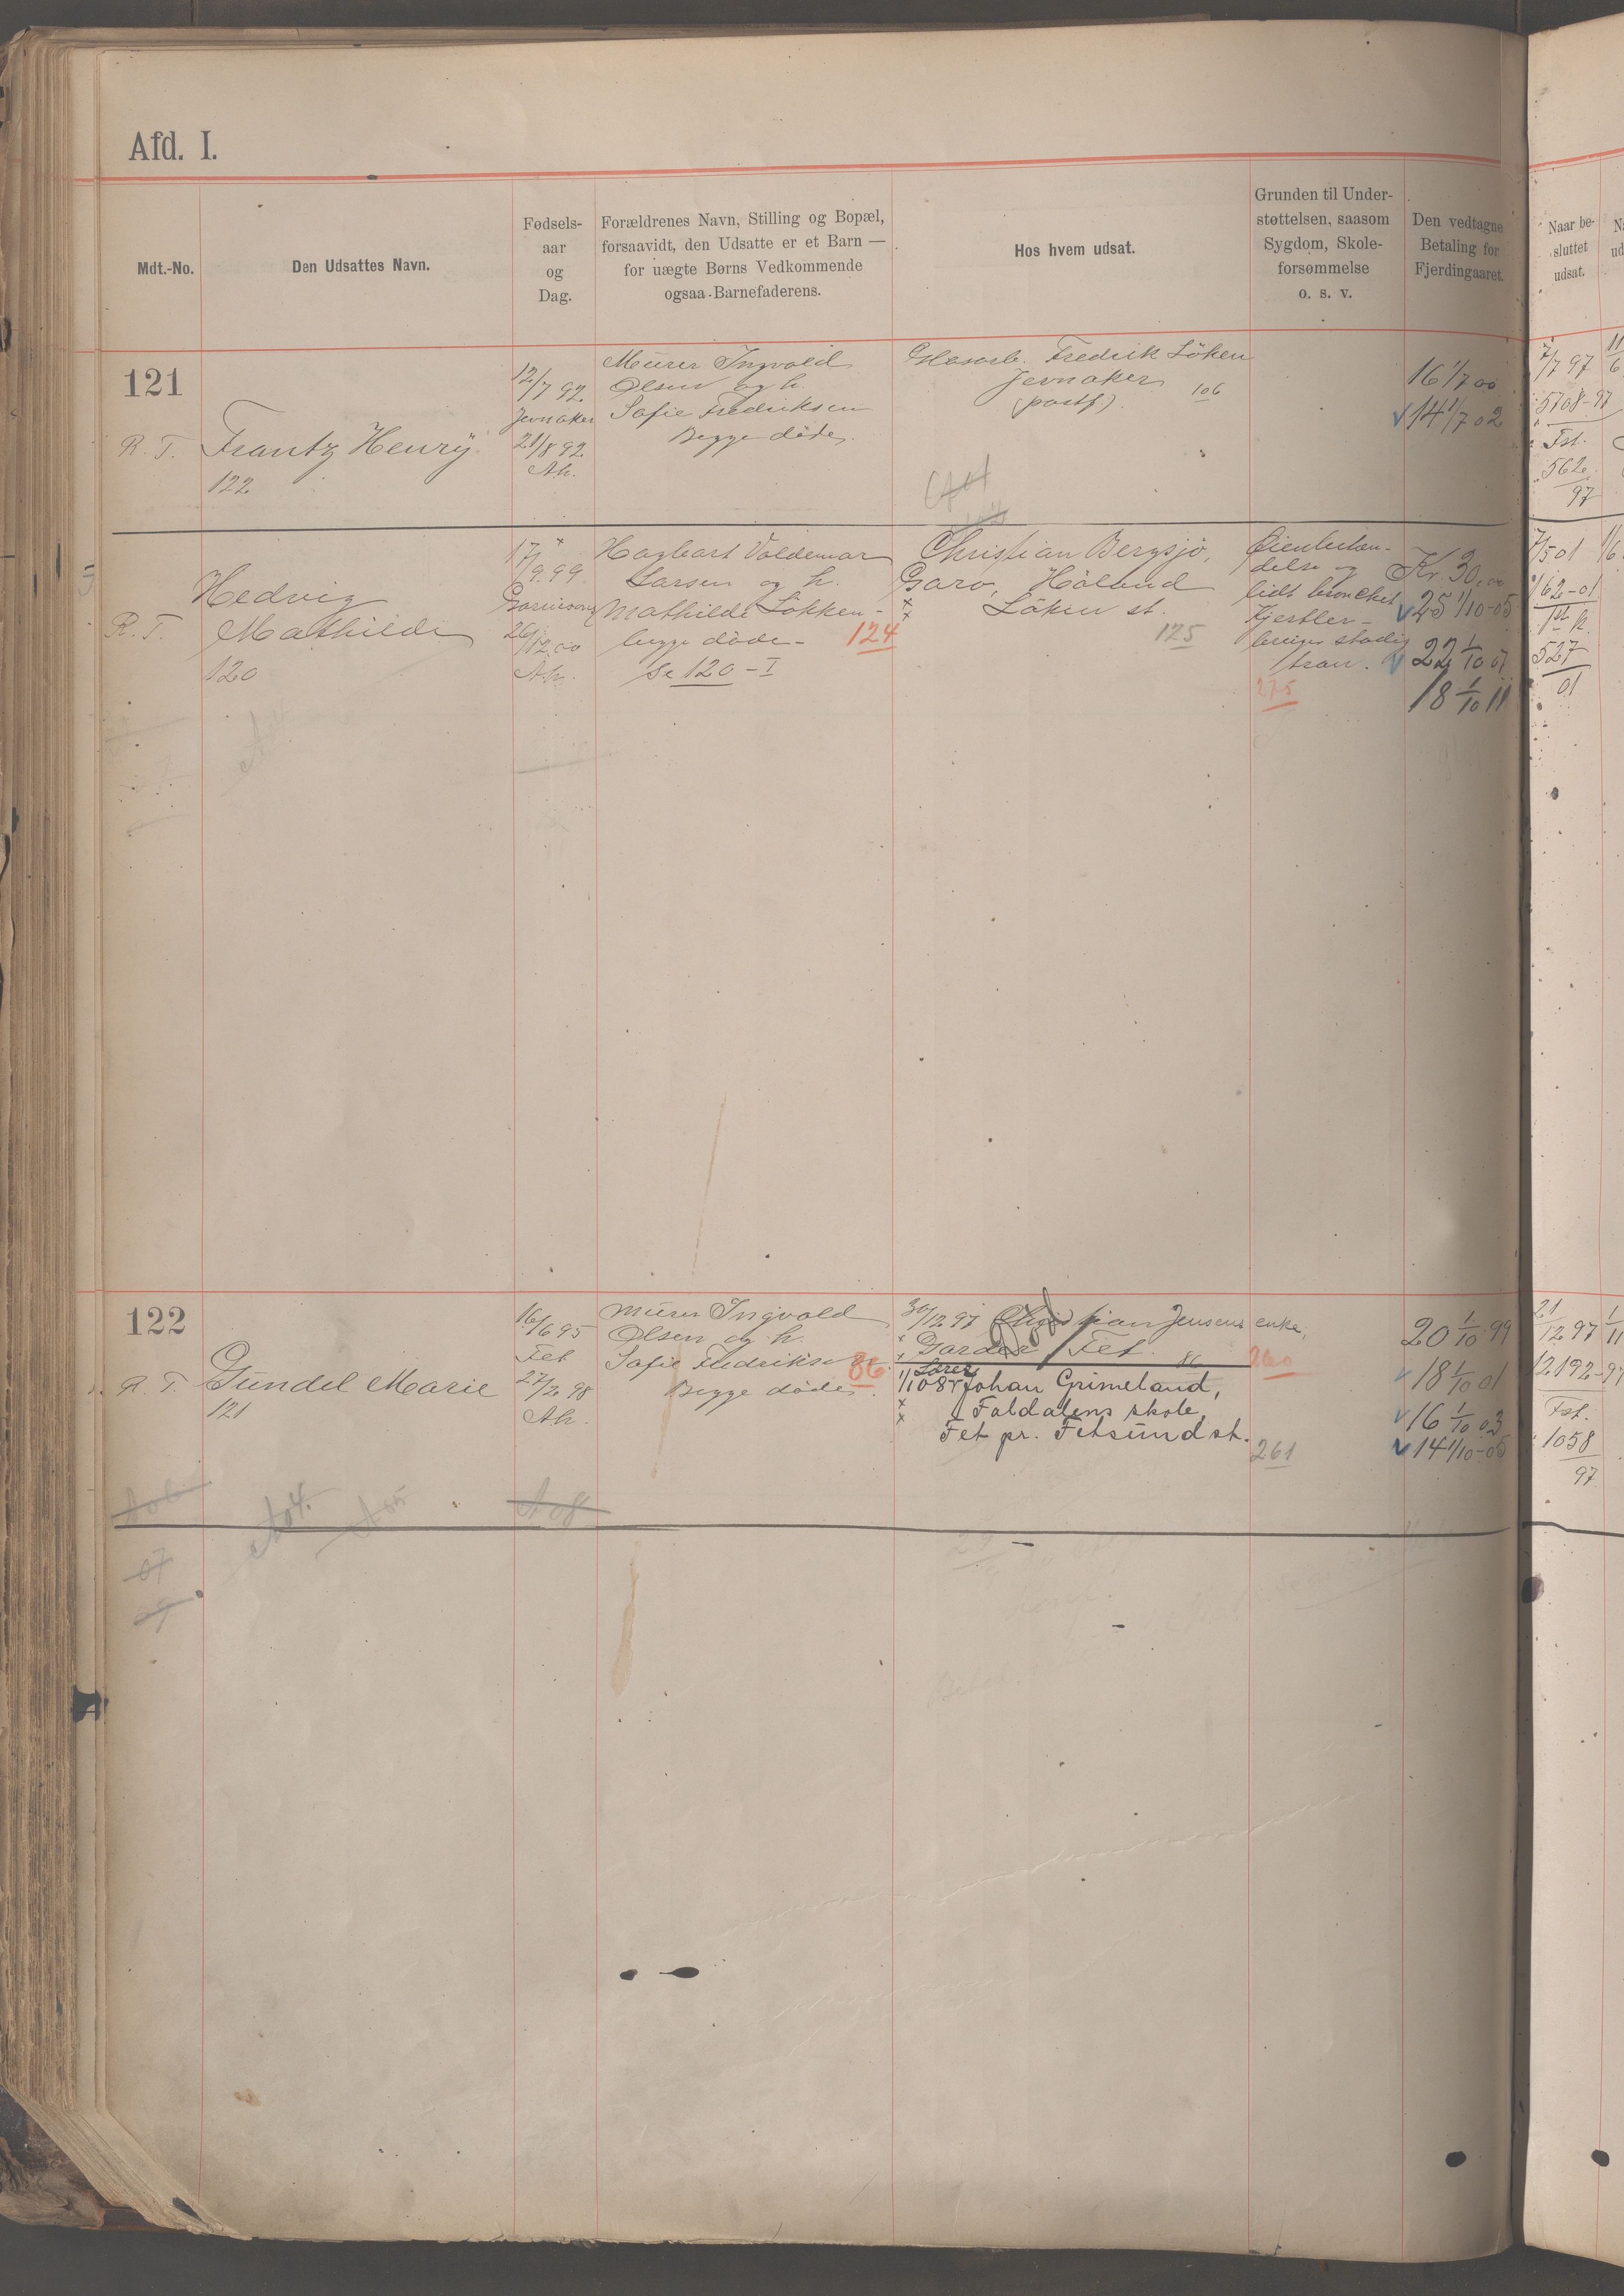 Afd. I.
Mdt.-No.
Den Udsattes Navn.
Fødsels-
aar
og
Dag.
Forældrenes Navn, Stilling og Bopæl,
forsaavidt, den Udsatte er et Barn —
for uægte Børns Vedkommende
ogsaa Barnefaderens.
Hos hvem udsat.
Grunden til Under-
støttelsen, saasom
Sygdom, Skole-
forsømmelse
o. s. v.
Den vedtagne
Betaling for
Fjerdingaaret.
Naar be-
sluttet
udsat.
121
R. T. Frantz Henry
122
12/7 92
Jevnaker
21/8 92
Ah.
Murer Ingvald
Olsen og h.
Sofie Fredriksen
Begge døde.
Glasarb. Fredrik Löken
Jevnaker
(postf.). 106
16 1/7 00
14 1/7 02
7/7 97
5708-97
Fst.
562
97
Hedvig
R. T. Mathilde
120
17/9.99
26/12.00
Ah.
Hagbart Valdemar
Larsen og h.
Mathilde Løkken-
begge døde- 124
Se 120-I
Christian Bergsjö,
Garo, Höland
Löken st.
125
lidt
Kjertler-
stadig
tran.
275
Kr. 30,00
25 1/10-05
22 1/10 07
18 1/10 11
7/5 01
162-01
527
01
122
R. T. Gundel Marie
121
16/6 95
Fet
27/2 98
Ah.
Murer Ingvald
Olsen og h.
Sofie Fredriksen 86
Begge døde.
30/12 97 Christian Jensens enke,
Garder Fet. 86
260
1/10 08 Lærer Johan Grimeland,
Faldalens skole
Fet pr. Fetsund st.
261
20 1/10 99
18 1/10 01
16 1/10 03
14 1/10-05
21/12 97
12192-97
Fst.
1058
97
A 04.
A 05
A 08
07